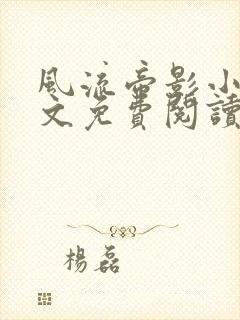 風流帝影小
文免費閱讀
楊磊